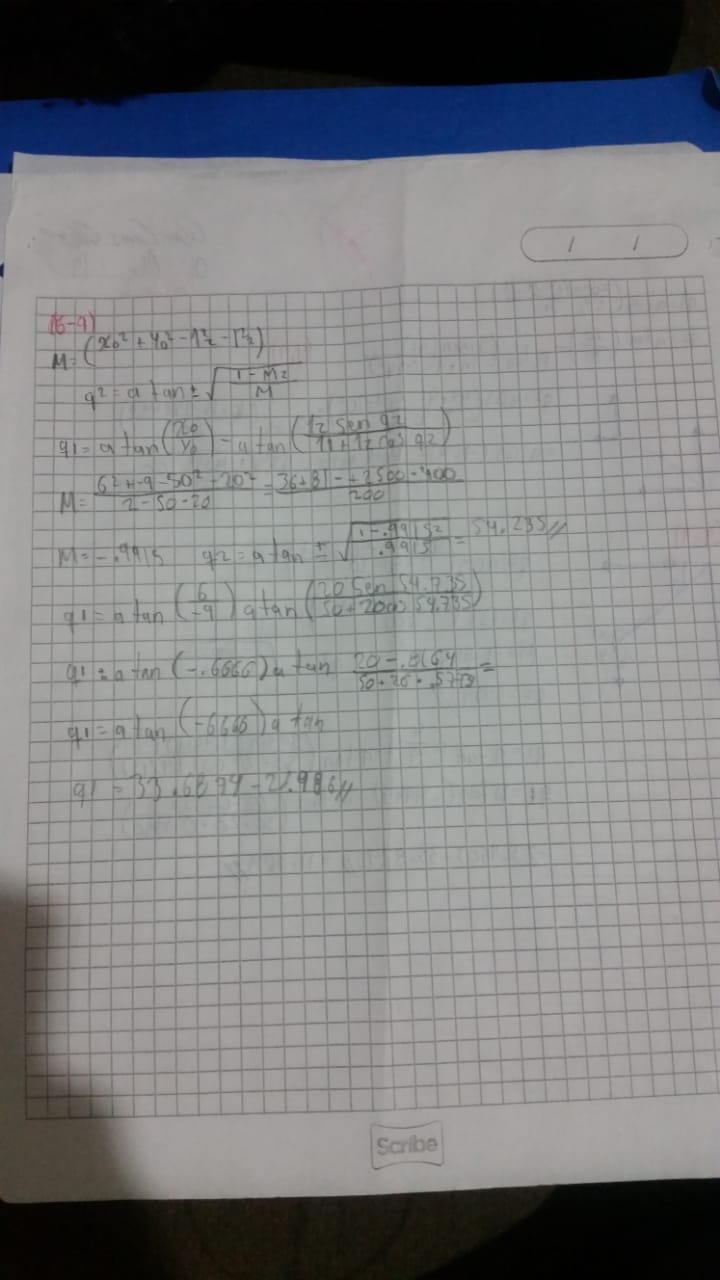 / /
(6-9)
M=(x₀²+y₀²-1²₂-1²₂)
q2=a tan ± √(1-M2/M)
q1=a tan(x₀/y₀)-a tan(12 sen q2/11+12cos q2)
M=6²+-9-50²-20²/2-50-20=36+81-+2500-400/200
M=-.9915 q2=a tan ± √(1-.9915²/.9915)=54.235//
q1=a tan(6/-9) a tan(20 Sen 54.735/50+20cos 54.735)
q1=a tan(-.6666)a tan 20-.8164/50+20*.5773=
q1=a tan(-6666)a tan
q1=33.6894-21.986//
Scribe